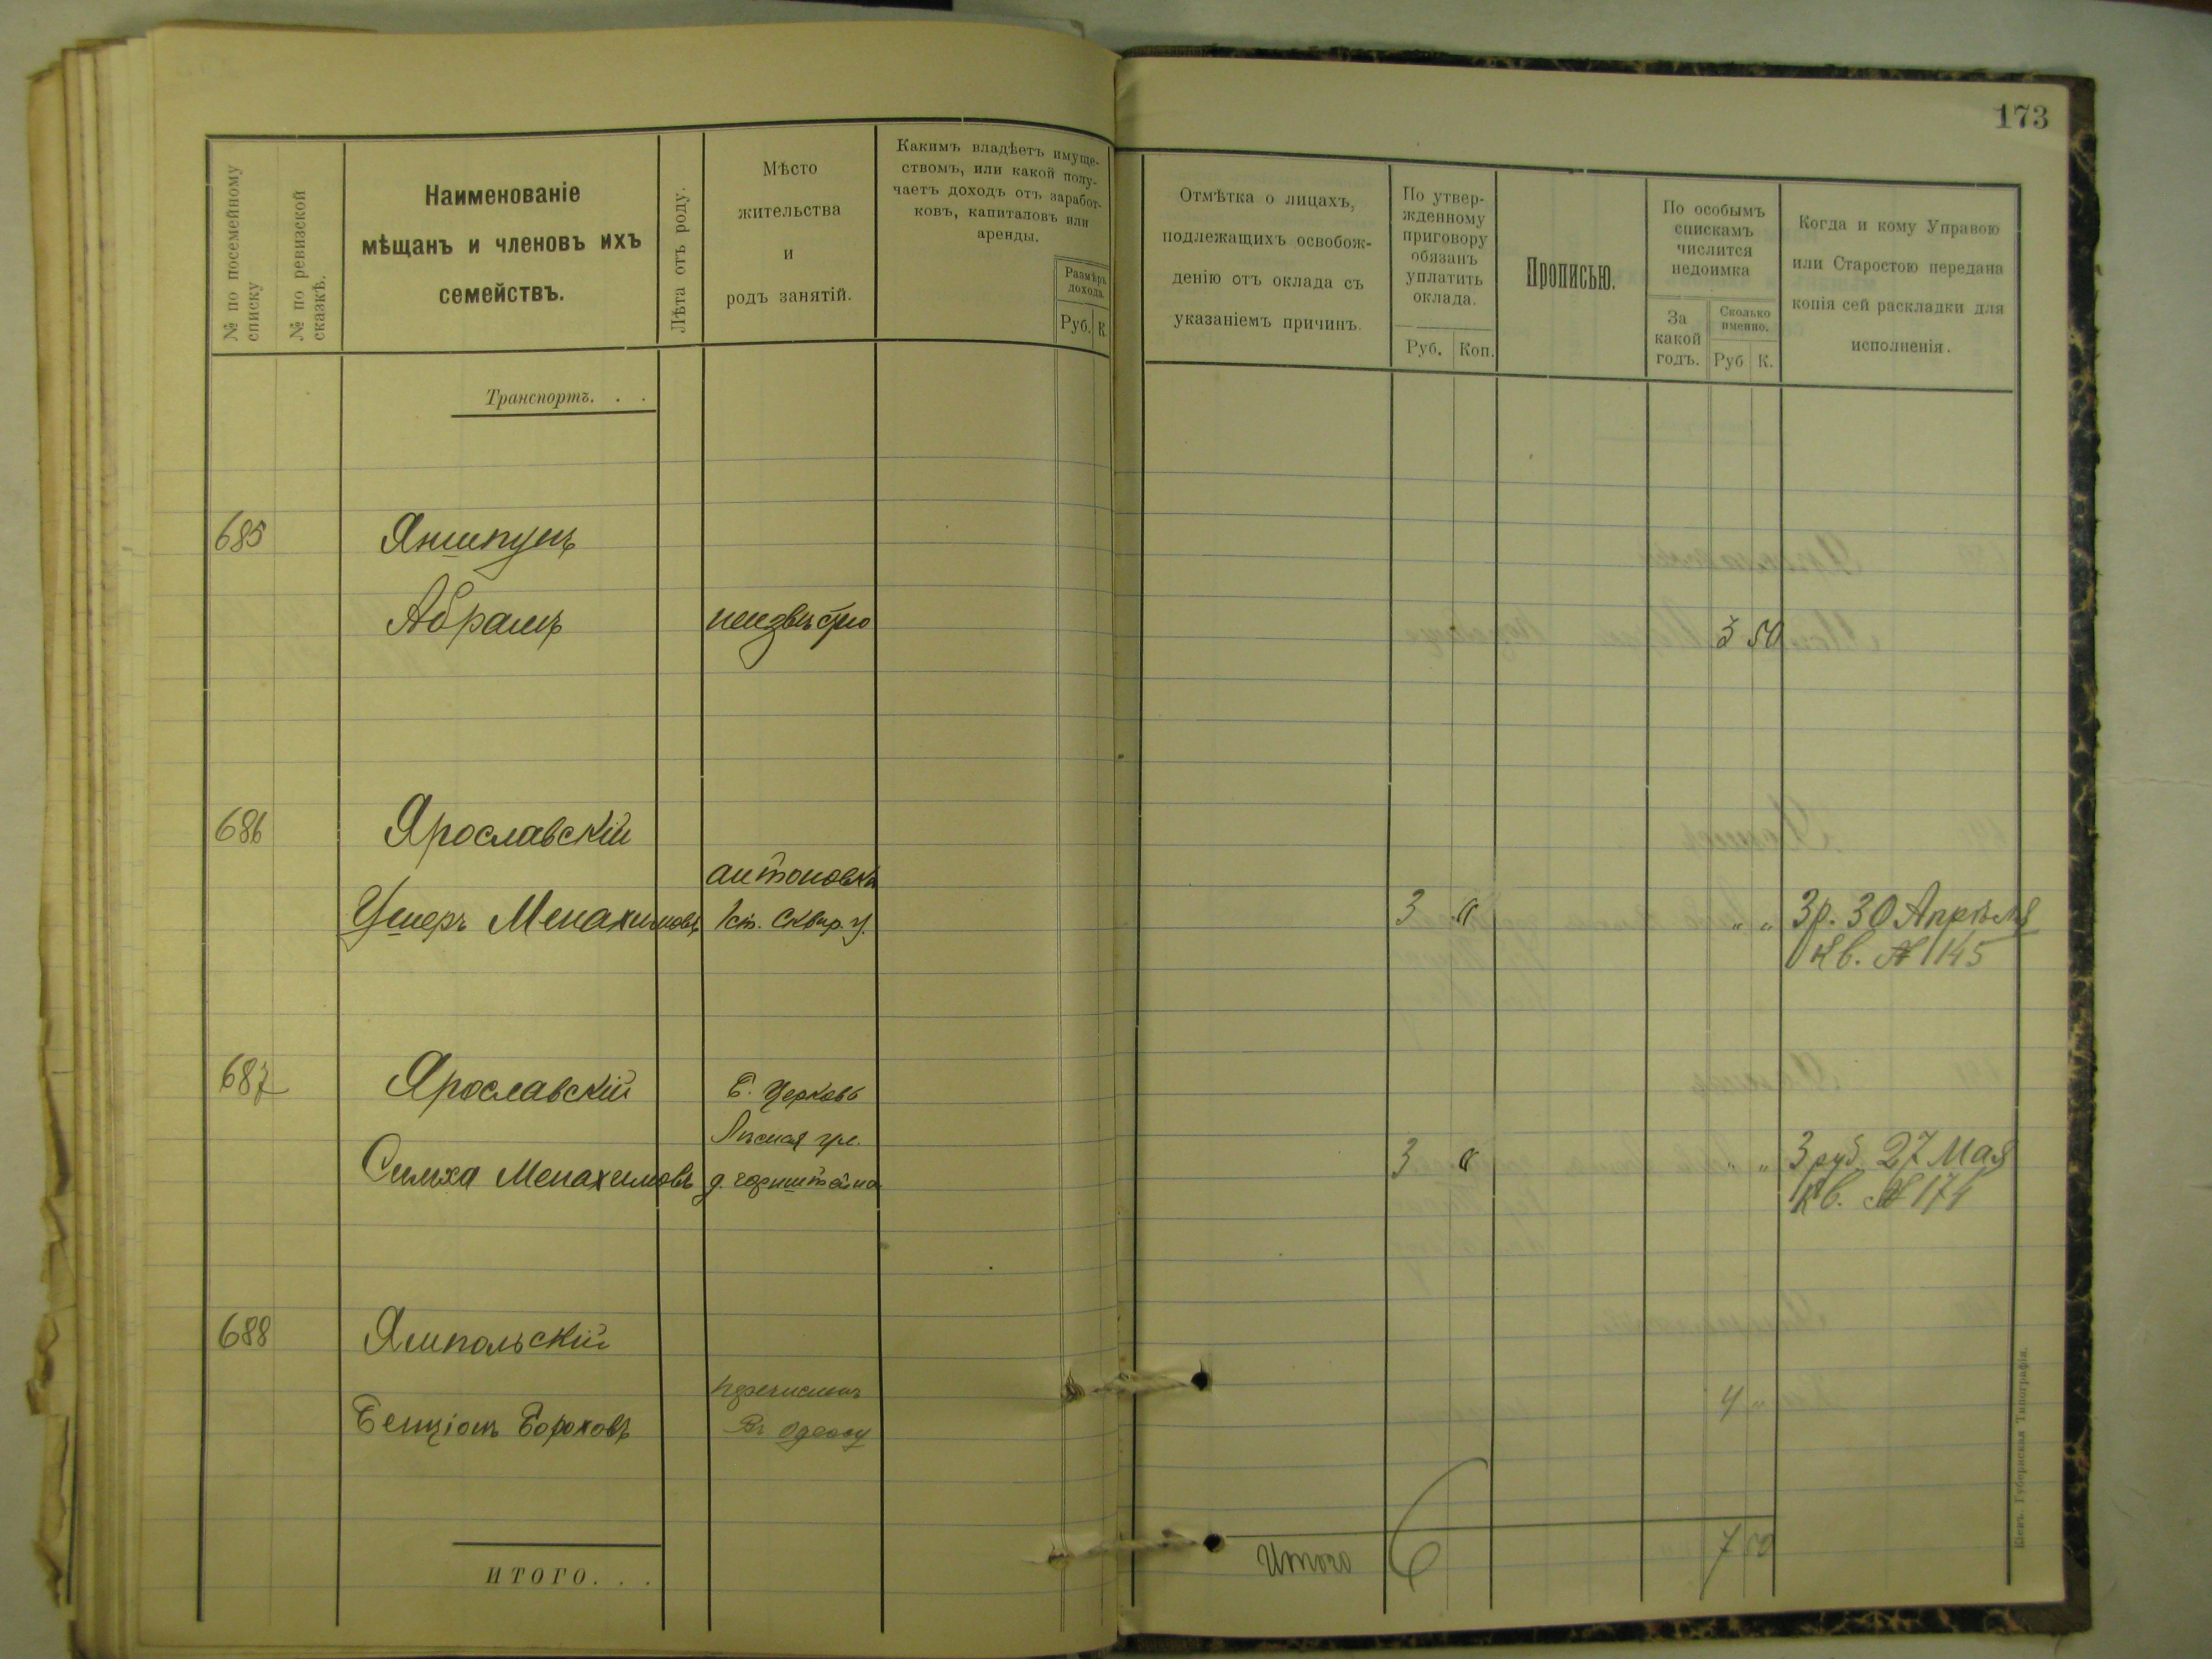 173
№ по посемейному списку
№ по ревизской сказкѣ.
Наименованіе
мѣщанъ и членовъ ихъ
семействъ.
Лѣта отъ роду.
Мѣсто
жительства
и
родъ занятій.
Какимъ владѣетъ имуще-
ствомъ, или какой полу-
чаетъ доходъ отъ заработ-
ковъ, капиталовъ или
аренды.
Размѣръ
дохода.
Руб. К.
Отмѣтка о лицахъ,
подлежащихъ освобож-
денію отъ оклада съ
указаніемъ причинъ.
По утвер-
жденному
приговору
обязанъ
уплатить
оклада.
Руб. Коп.
Прописью.
По особымъ
спискамъ
числится
недоимка
За
какой
годъ.
Сколько
именно.
Руб К.
Когда и кому Управою
или Старостою передана
копія сей раскладки для
исполненія.
Транспортъ. . .
685 Яншпунъ
Абрамъ неизвѣстно 3 50
686 Ярославскій
антоновка
Ушеръ Менахимовъ 1ст. Сквир. у. 3 " " " 3р. 30 Апрѣля
Кв. № 1145
687 Ярославскій Б. Церковь
Лѣсная ул.
Симха Менахимовъ д. горнштейна 3 " " " 3 руб. 27 Мая
Кв. № 174
688 Ямпольскій
перечислен
Бенціонъ Бороховъ Въ Одессу 4 "
Итого 6 7 50
ИТОГО. . .
Кіевъ. Губернская Типографія.